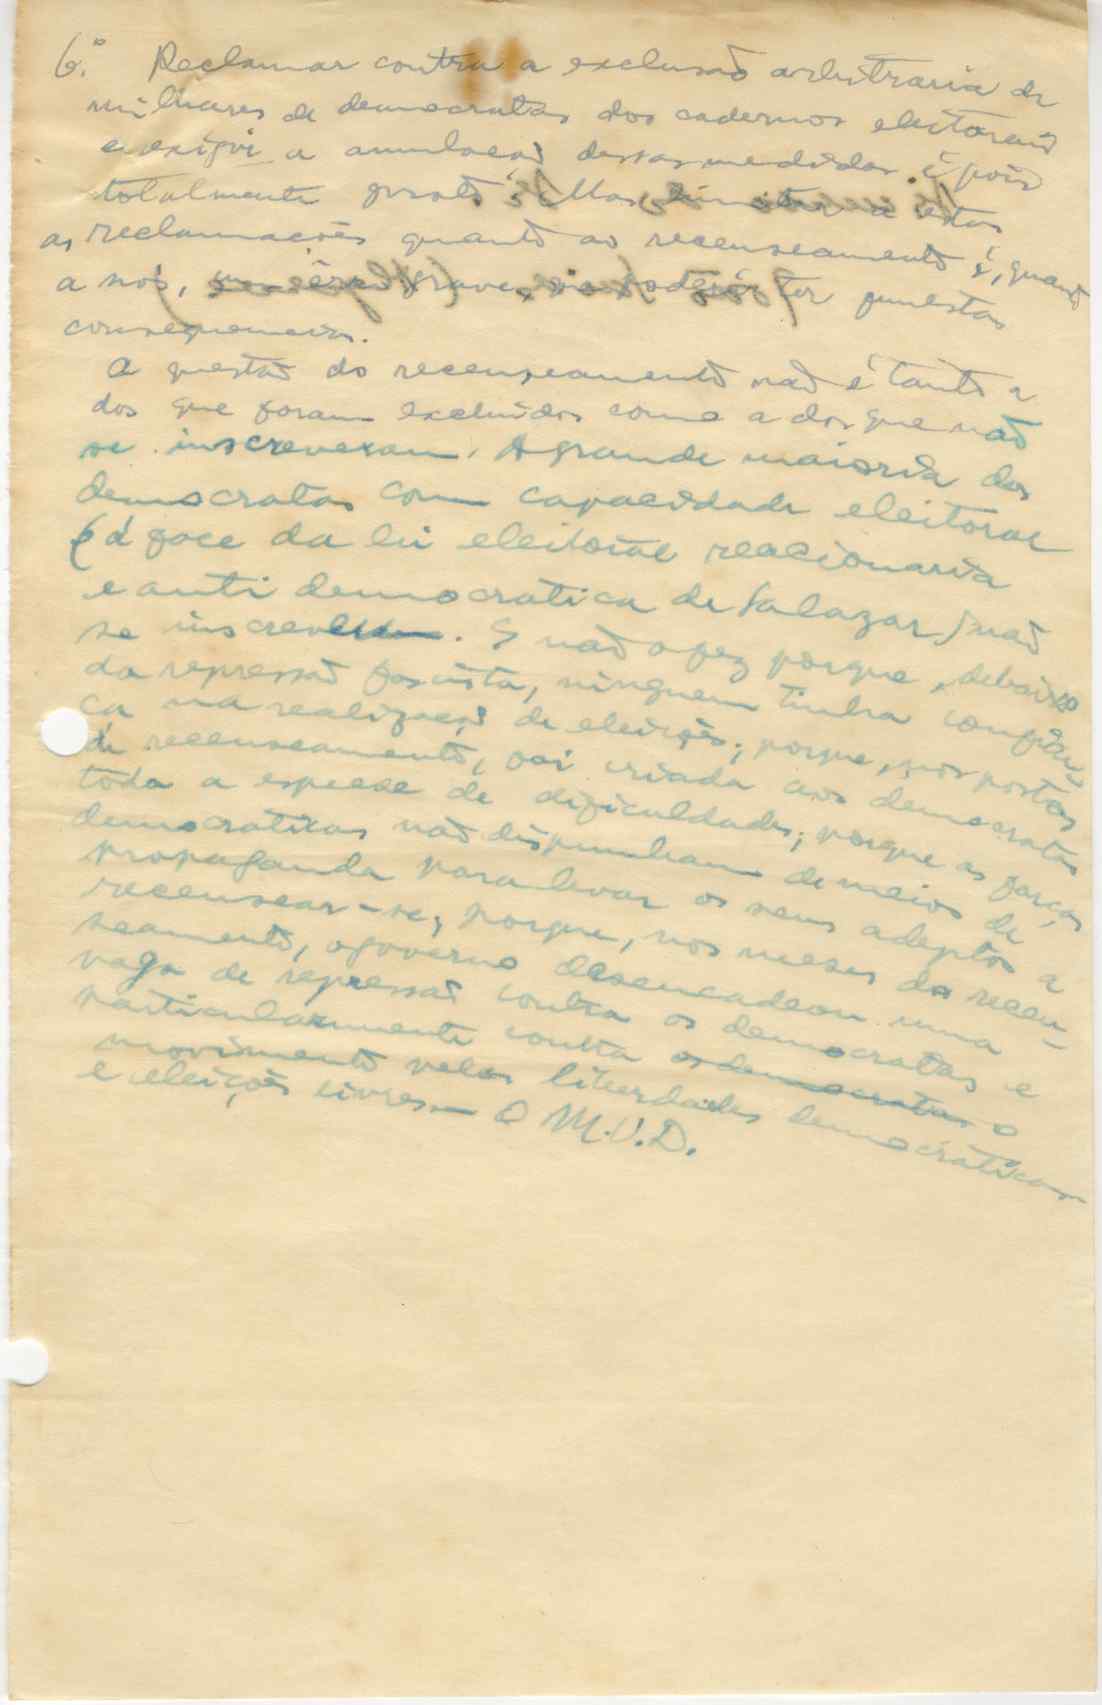 6.º Reclamar contra a exclusão arbitraria de
milhares de democratas dos cadernos eleitorais
e exigir a anulação dessas medidas é pois
totalmente justo. Mas limitar a estas
as reclamações quanto ao recenseamento é, quanto
a nós, um êrro grave, que poderá ter funestas
consequencias.
A questão do recenseamento não é tanto a
dos que foram excluidos como a dos que não
se inscreveram. A grande maioria dos
democratas com capacidade eleitoral
(á face da lei eleitoral reacionaria
e anti democratica de Salazar) não
se inscreveu. E não o fez porque, debaixo
da repressão fascista, ninguem tinha confian-
ça na realização de eleições; porque, nos postos
de recenseamento, foi criada aos democratas
toda a especie de dificuldades; porque as forças
democraticas não dispunham de meios de
propaganda para levar os seus adeptos a
recensear-se; porque, nos meses do recen-
seamento, o governo desencadeou uma
vaga de repressão contra os democratas e
particularmente contra os democratas o
movimento pelas liberdades democráticas
e eleições livres — O M.U.D.